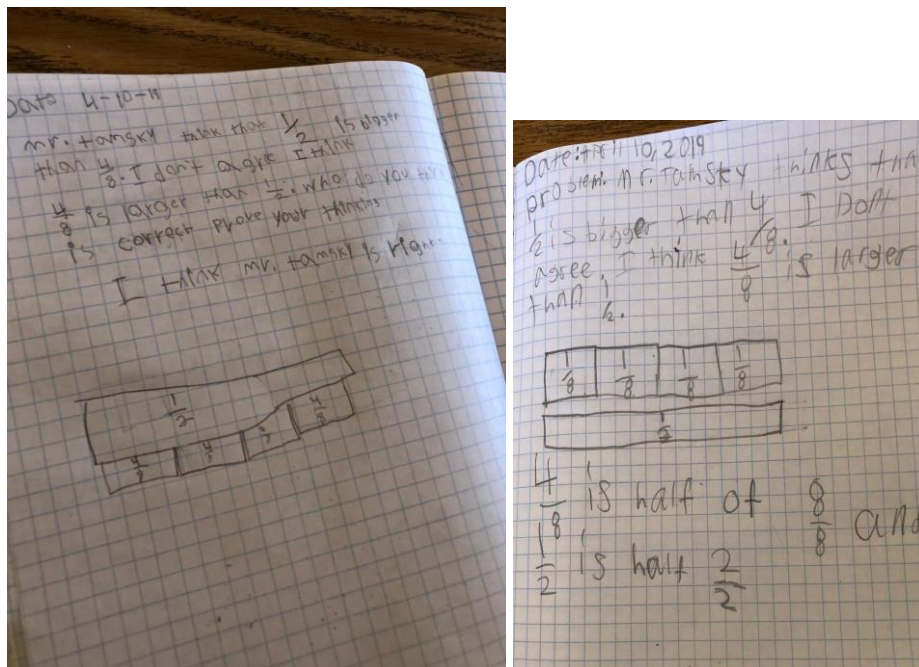 Date 4-10-11
mr. tamsky think that 1/2 is bigger
than 4/8. I don't agrie I think
4/8 is larger than 1/2. who do you
is correct prove your thinking
I think mr. tamsky is right.
1/2
4/8
Date: 10, 2019
problem: Mr. Tamsky thinks
1/2 is bigger than 4/8. I Dont
agree. I think 4/8 is larger
than 1/2.
1/8 1/8 1/8 1/8
4/8 is half of 8/8 and
1/2 is half 2/2